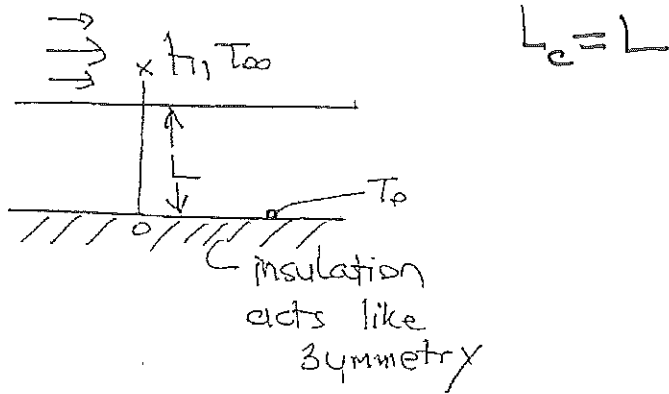 L_c = L
x h, T∞
L
T_o
0
insulation
acts like
symmetry